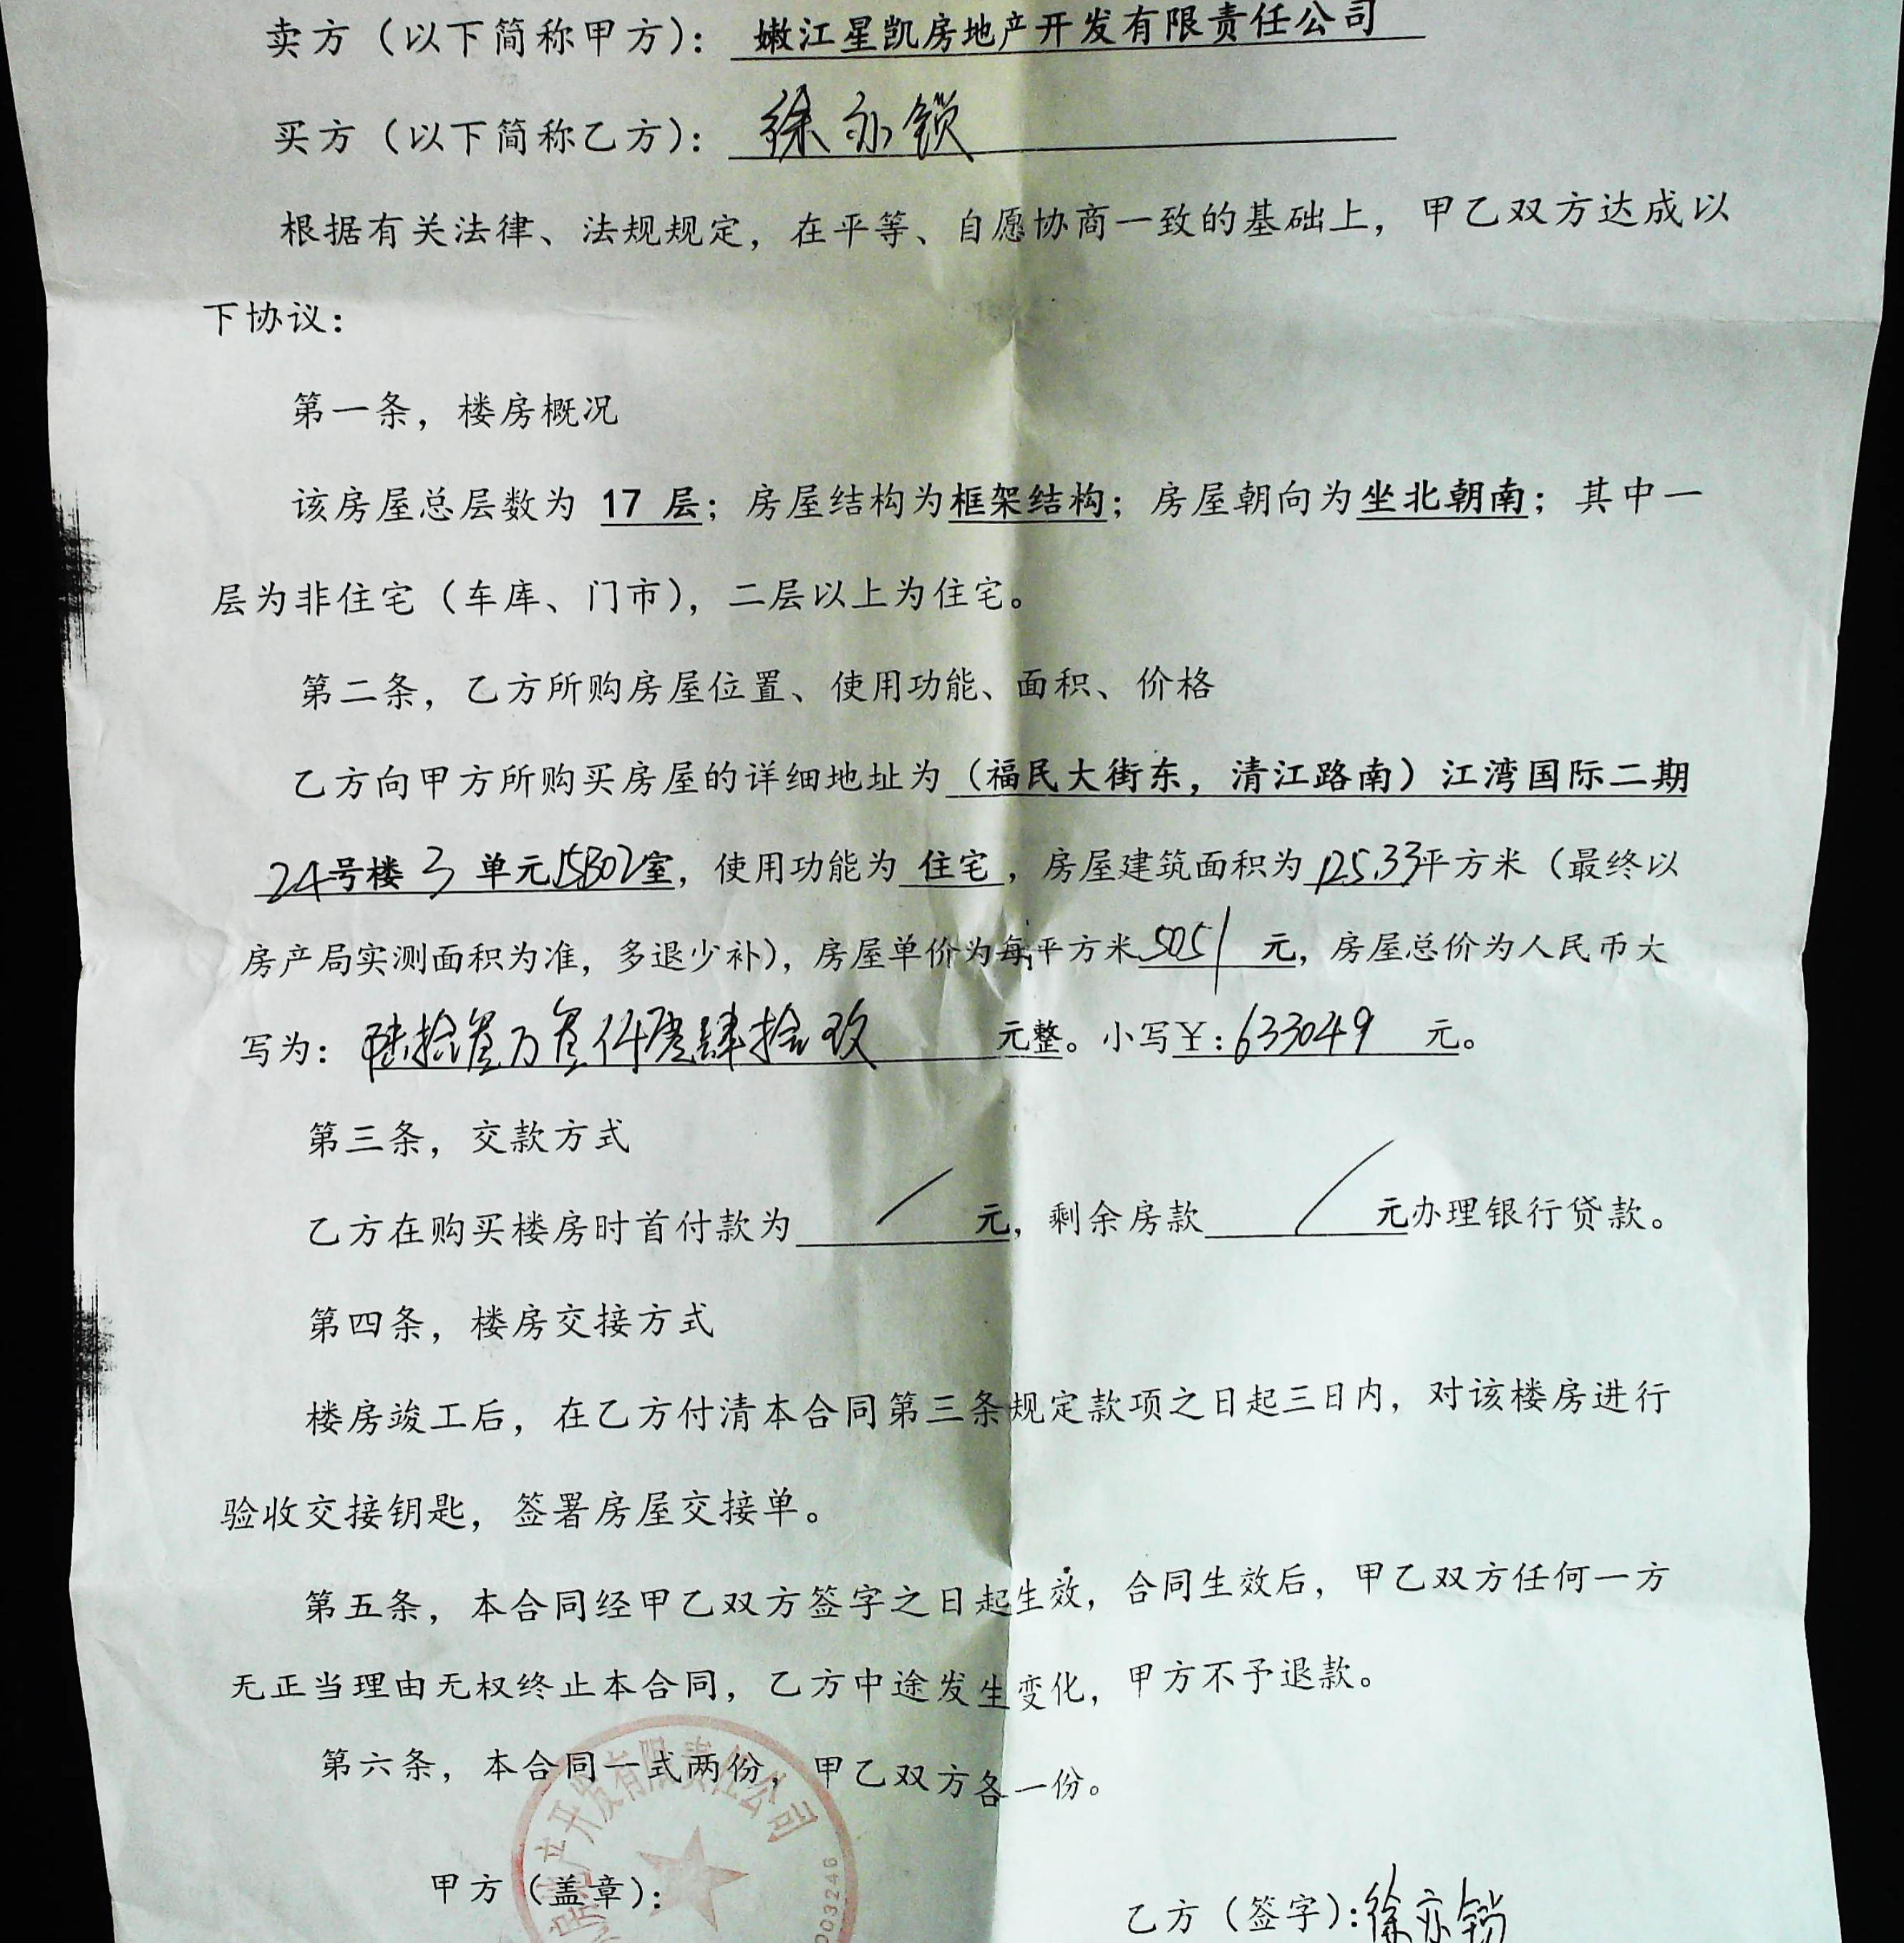 卖方（以下简称甲方）：嫩江星凯房地产开发有限责任公司
买方（以下简称乙方）：徐亦锁
根据有关法律、法规规定，在平等、自愿协商一致的基础上，甲乙双方达成以
下协议：
第一条，楼房概况
该房屋总层数为 17 层；房屋结构为框架结构；房屋朝向为坐北朝南；其中一
层为非住宅（车库、门市），二层以上为住宅。
第二条，乙方所购房屋位置、使用功能、面积、价格
乙方向甲方所购买房屋的详细地址为（福民大街东，清江路南）江湾国际二期
24号楼 3 单元室，使用功能为 住宅，房屋建筑面积为125.33平方米（最终以
房产局实测面积为准，多退少补），房屋单价为每平方米5051 元，房屋总价为人民币大
写为：陆拾叁万叁仟零肆拾玖 元整。小写￥：633049 元。
第三条，交款方式
乙方在购买楼房时首付款为 / 元，剩余房款 / 元办理银行贷款。
第四条，楼房交接方式
楼房竣工后，在乙方付清本合同第三条规定款项之日起三日内，对该楼房进行
验收交接钥匙，签署房屋交接单。
第五条，本合同经甲乙双方签字之日起生效，合同生效后，甲乙双方任何一方
无正当理由无权终止本合同，乙方中途发生变化，甲方不予退款。
第六条，本合同一式两份，甲乙双方各一份。
开发有限责任公司
甲方（盖章）：
003246
乙方（签字）：徐亦锁